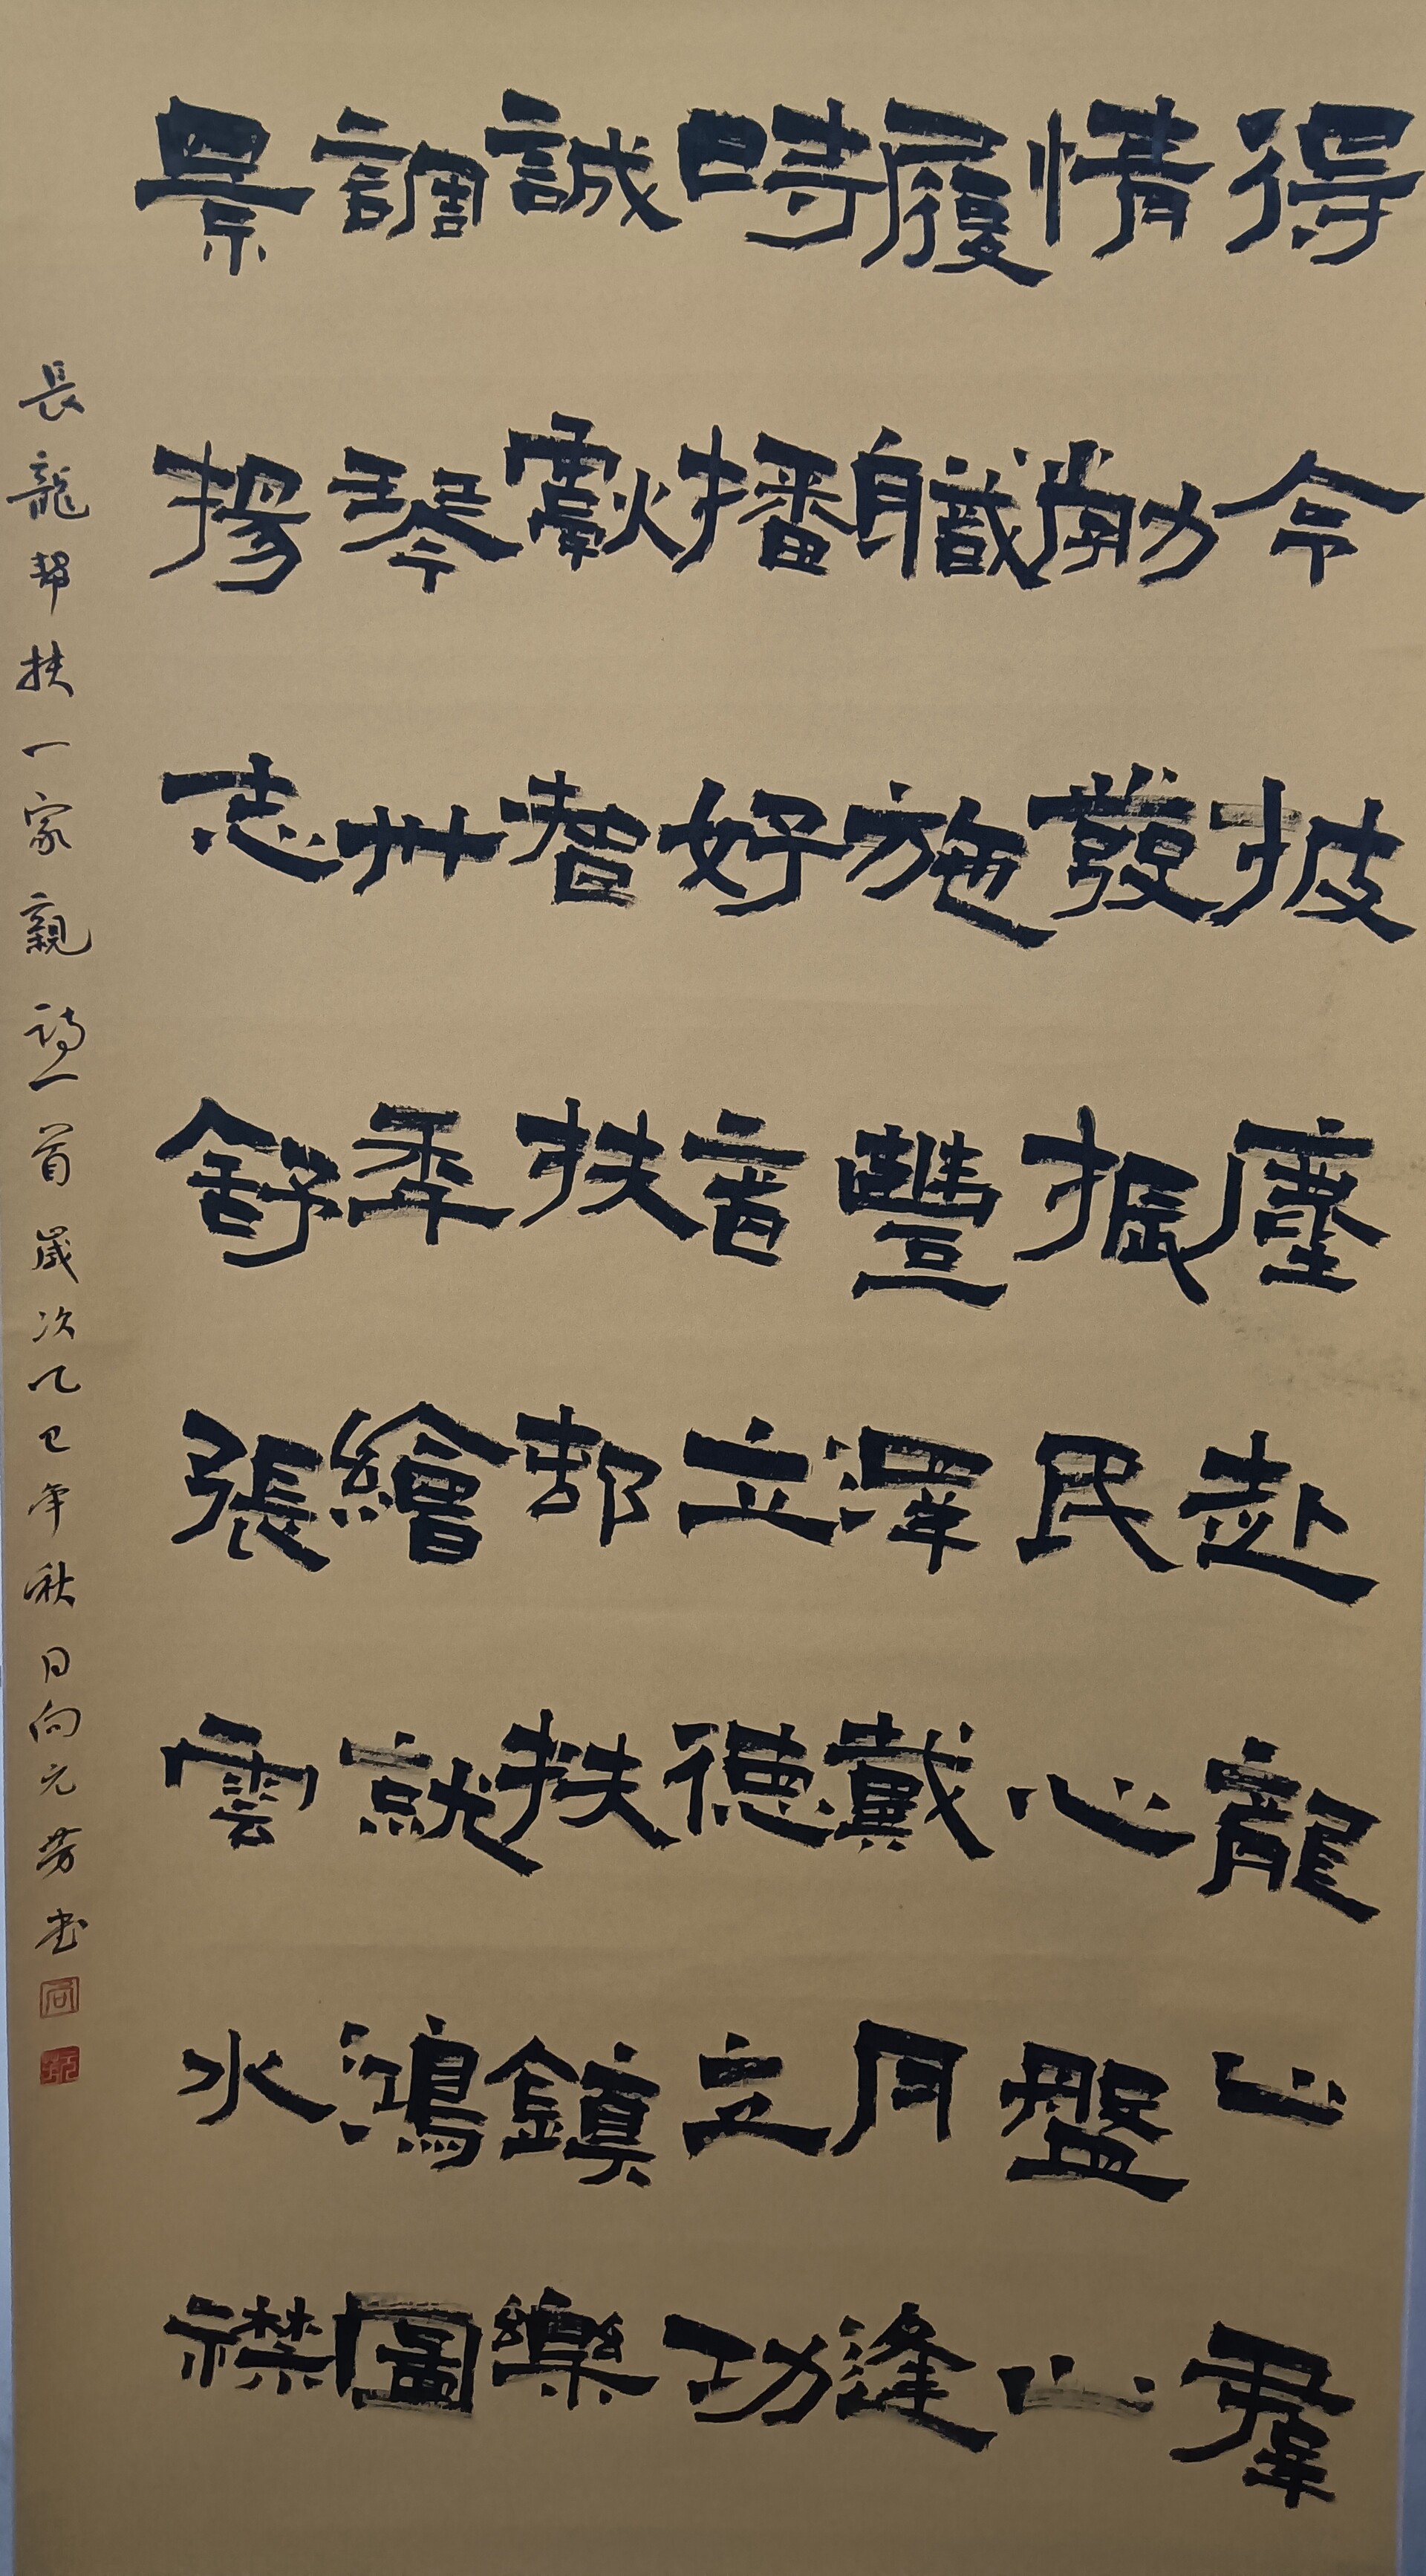 得令披塵赴龍山羣
情勃發振民心盤山
履職施豐澤戴月逢
時播好音立德立功
誠獻智扶邨扶鎮樂
調琴卅秊繪就鴻圖
景揚志舒張雲水襟
長龍幫扶一家親詩一首歲次乙巳年秋月向元芳书
向